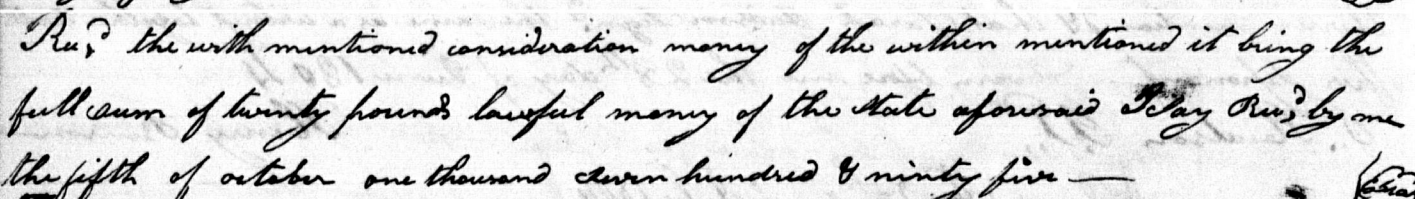 Recd the with mentioned consideration money of the within mentioned it being the
full sum of twenty pounds lawful money of the State aforesaid I Say Recd by me
the fifth of october one thousand seven hundred & ninty five —